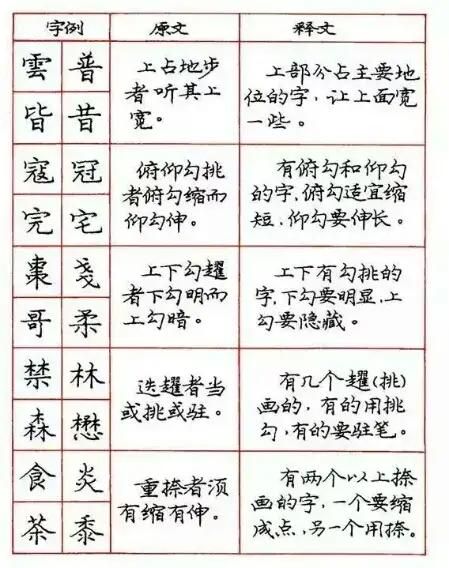 字例 原文 释文
雲 普
皆 昔
上占地步
者听其上
宽。
上部分占主要地
位的字,让上面宽
一些。
寇 冠
完 宅
俯仰勾挑
者俯勾缩而
仰勾伸。
有俯勾和仰勾
的字,俯勾适宜缩
短,仰勾要伸长。
棗 戔
哥 柔
上下勾趯
者下勾明而
上勾暗。
上下有勾挑的
字,下勾要明显,上
勾要隐藏。
禁 林
森 懋
迭趯者当
或挑或驻。
有几个趯(挑)
画的,有的用挑
勾,有的要驻笔。
食 炎
茶 黍
重捺者须
有缩有伸。
有两个以上捺
画的字,一个要缩
成点,另一个用捺。